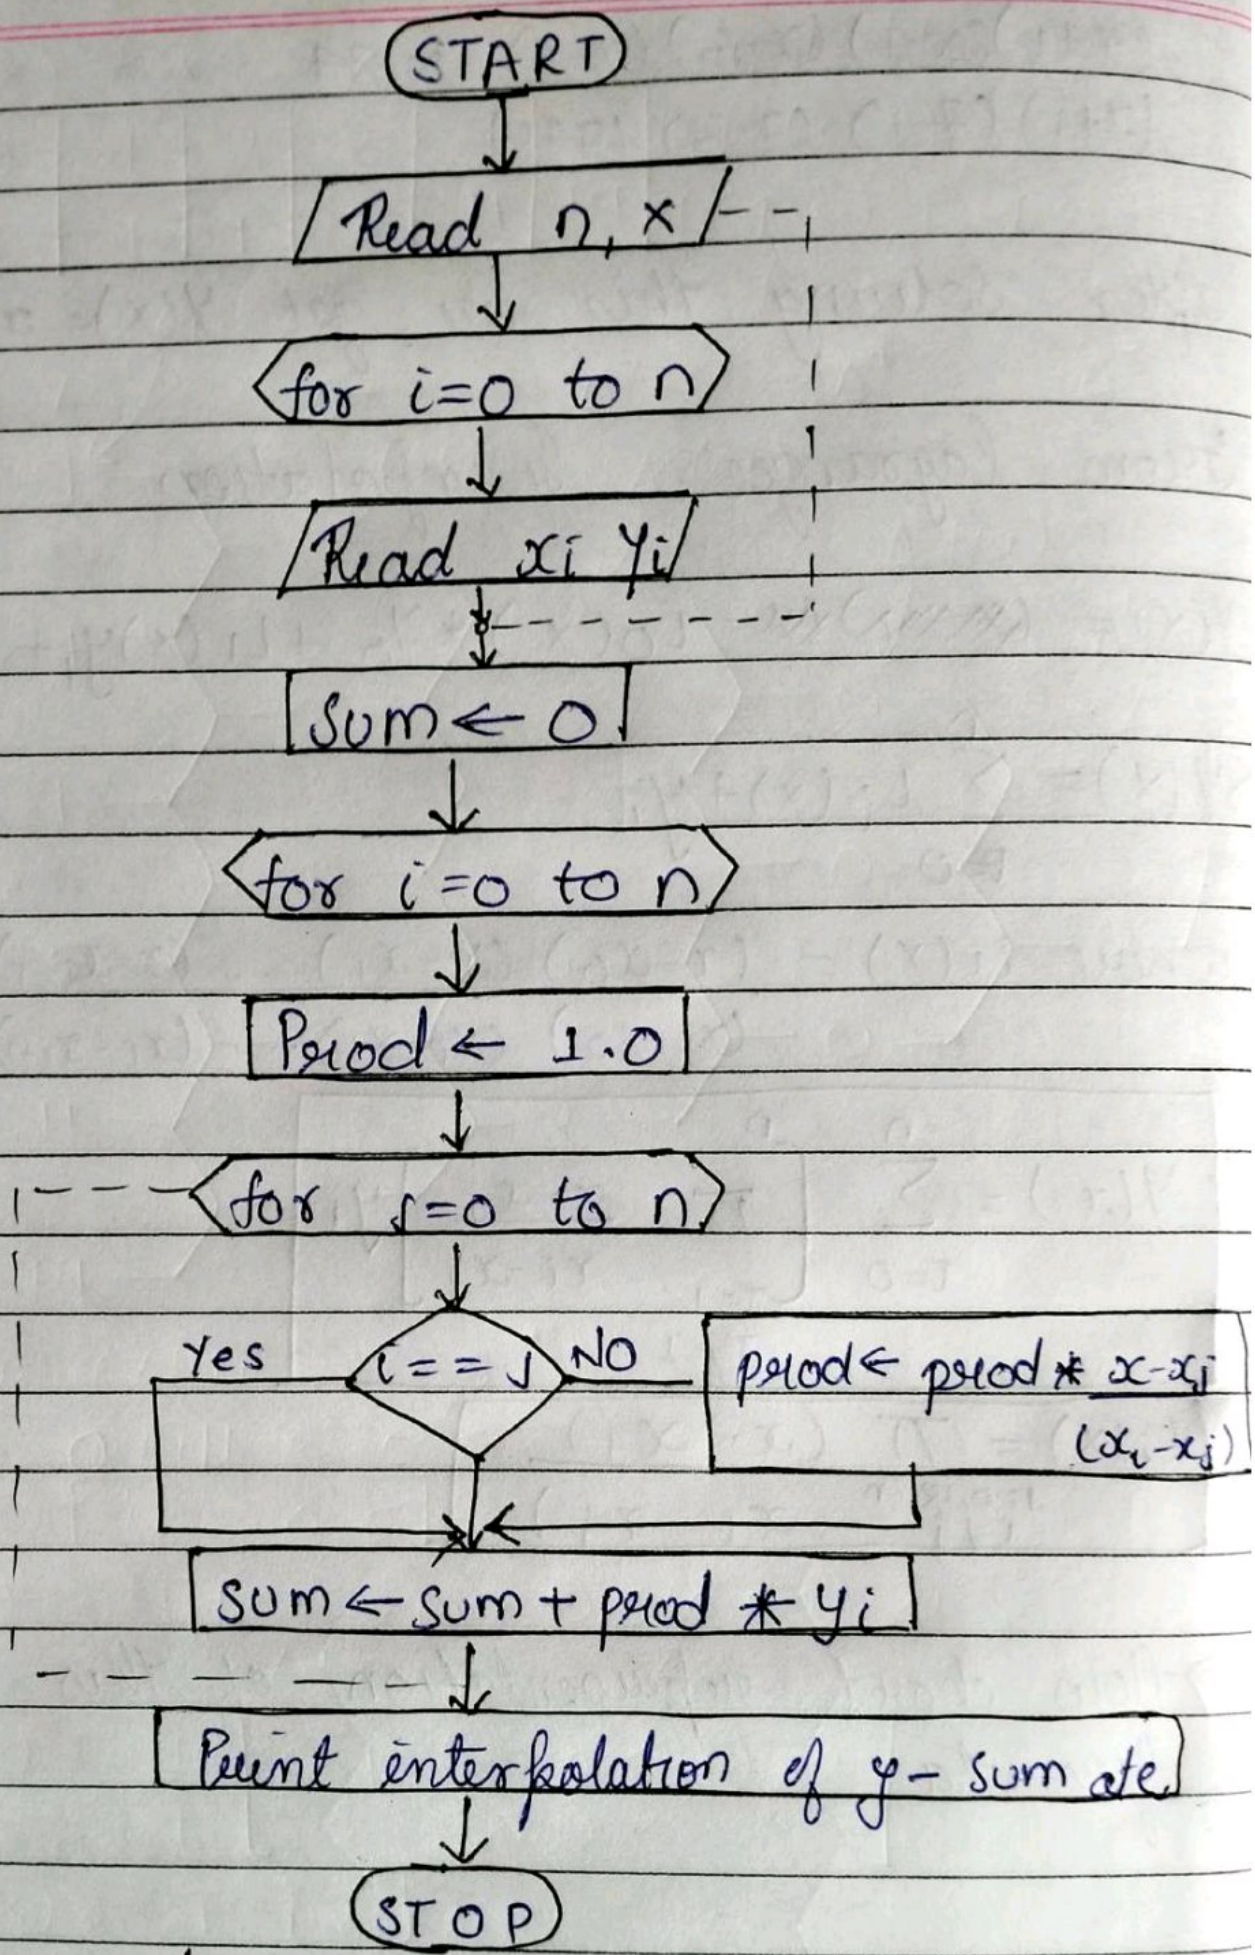 START
Read n, x
for i=0 to n
Read xi yi
Sum ← 0
for i=0 to n
Prod ← 1.0
for j=0 to n
Yes i==j NO
prod ← prod * x-xj
(xi-xj)
sum ← sum + prod * yi
Print interpolation of y- sum
STOP